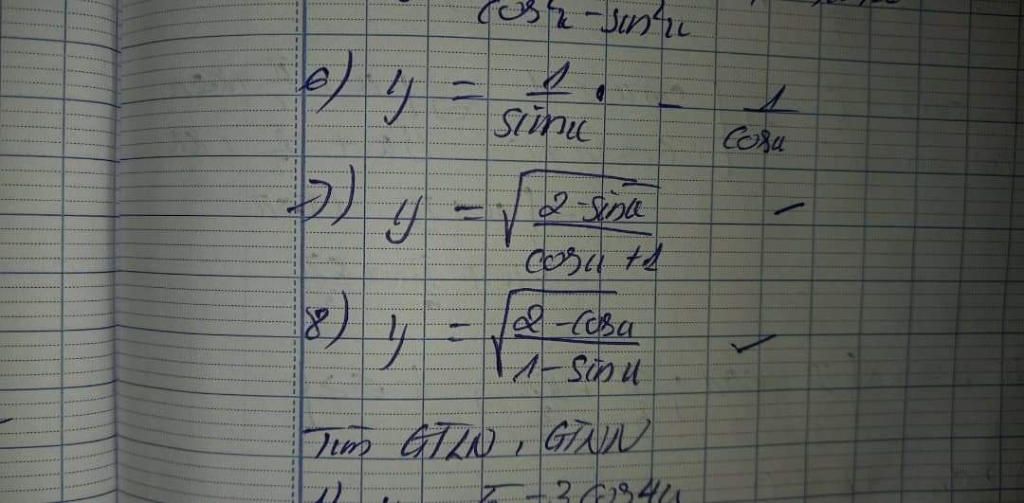 cos²x - sin²x
6) y = 1/sinx - 1/cosx
7) y = √(2-sinx)/(cosx+1)
8) y = √(2-cosx)/(1-sinx)
Tìm GTLN, GTNN